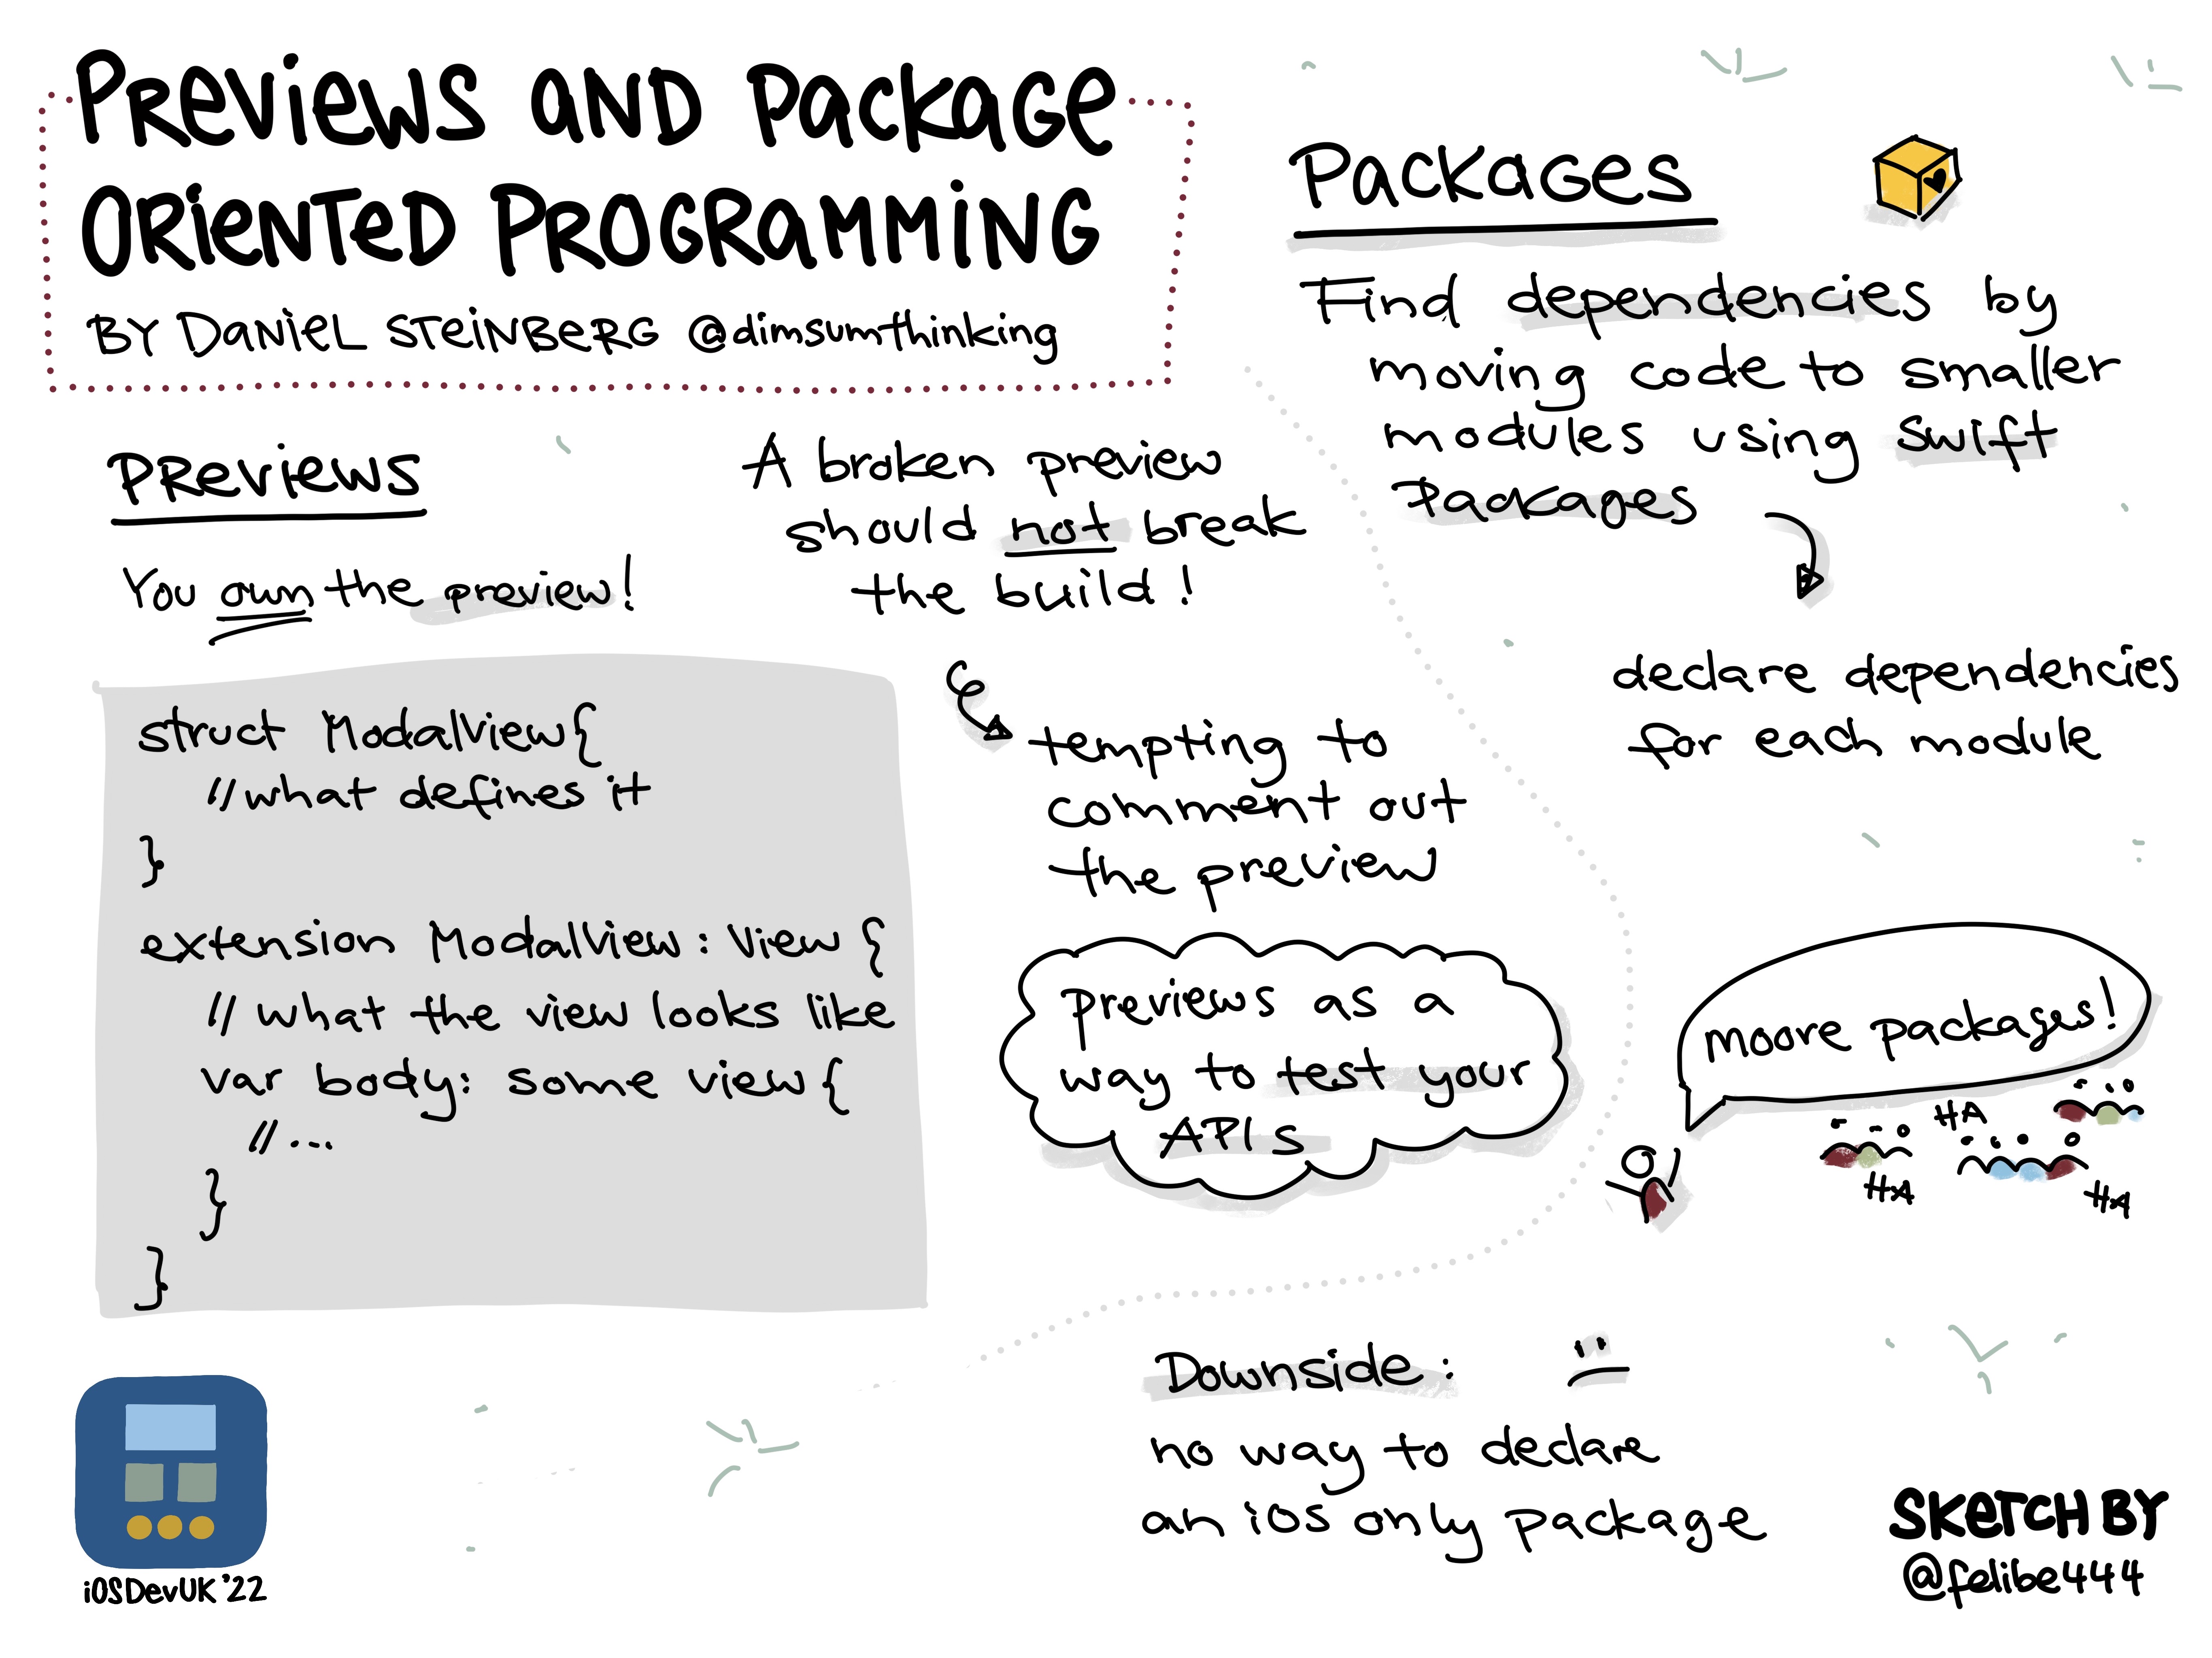 Previews and Package
Oriented Programming
By Daniel Steinberg @dimsumthinking
Previews
You own the preview!
struct ModalView{
//what defines it
}
extension ModalView: View {
// what the view looks like
var body: some view{
//...
}
}
A broken preview
should not break
the build!
tempting to
comment out
the preview
previews as a
way to test your
APIs
Packages
Find dependencies by
moving code to smaller
modules using Swift
Packages
declare dependencies
for each module
moore packages!
HA
HA
HA
Downside:
no way to declare
an iOS only package
iOSDevUK'22
Sketch by
@felibe444